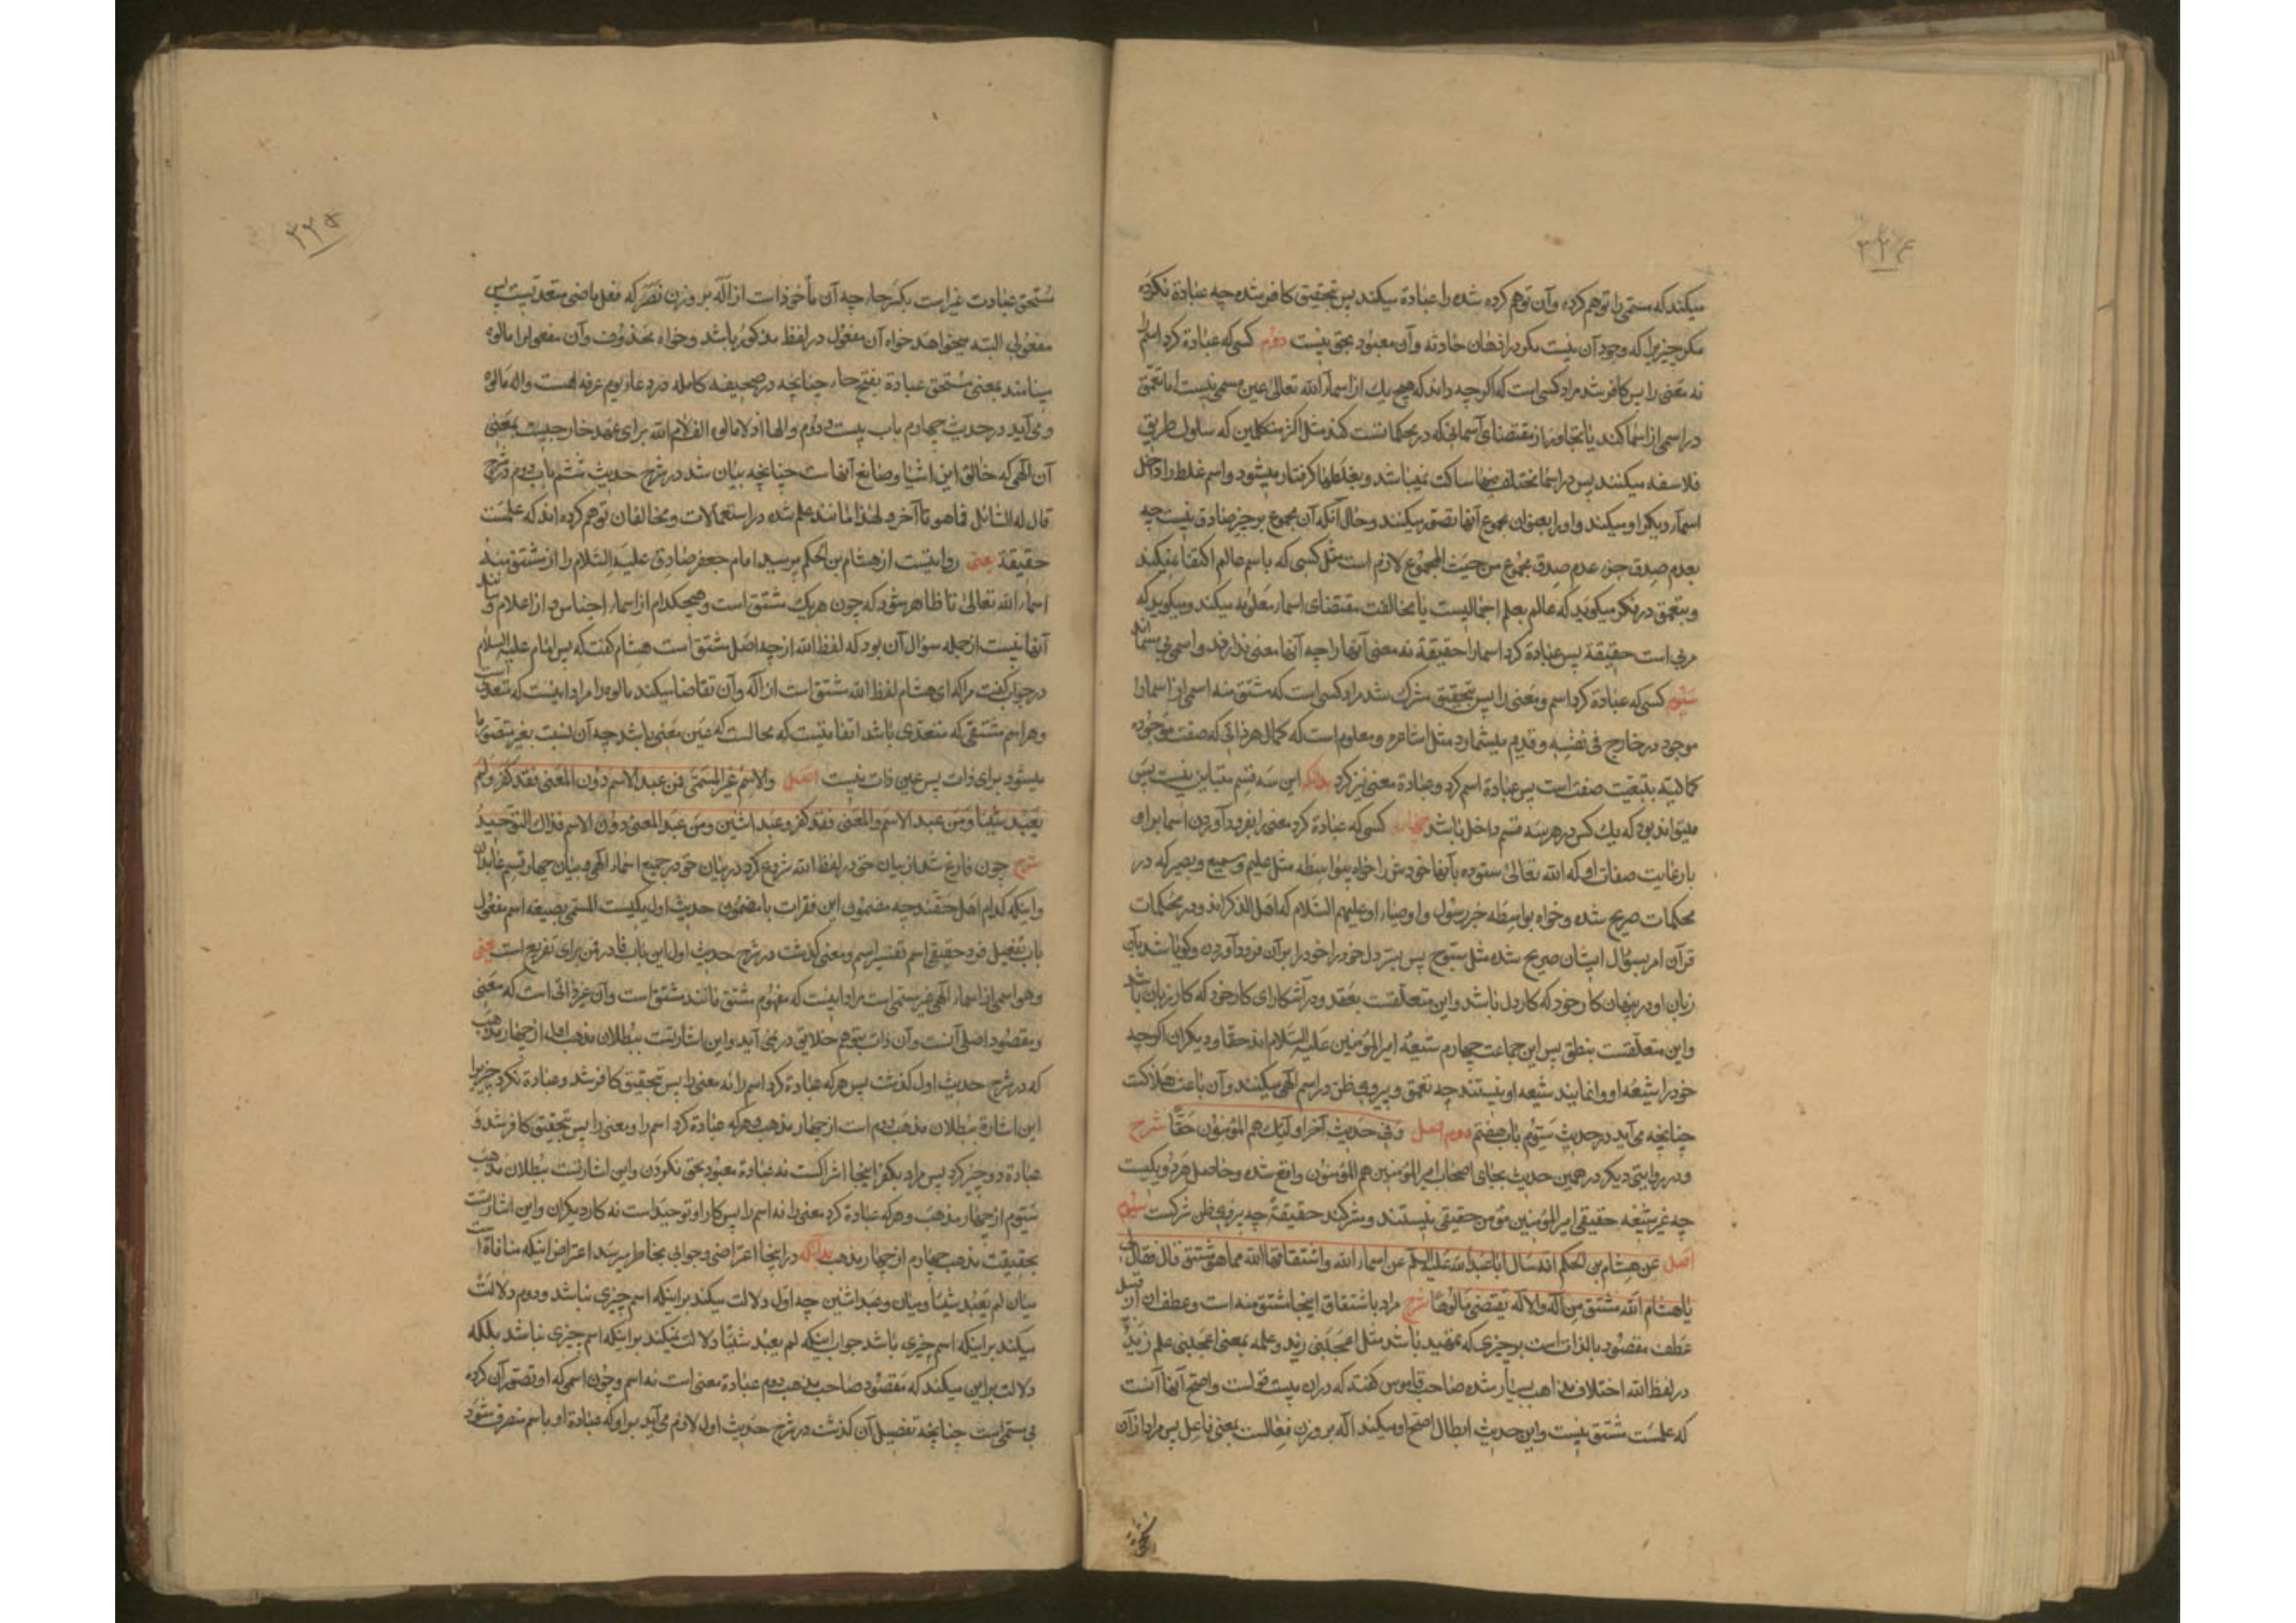 ۳۲۴
میکند که مسمی را توهم کرده و آن توهم کرده شده را عبادة میکند پس بتحقیق کافر شده چه عبادة نکرده
مکر چیزیرا که وجود آن نیست مکر در اذهان حادثه و آن معبود بحق نیست دوم کسی که عبادة کرد اسم را
نه معنی را پس کافر شد مراد کسی است که اکرچه داند که هیچ یك از اسماء الله تعالی عین مسمی نیست اما تعمق
در اسمی از اسما کند یا تجاوز از مقتضای آسمانی که در محکماتست کند مثل اکثر متکلمین که سلوك طریق
فلاسفه میکنند پس در اسما مختلف فیها ساکت نمیباشد و بغلطها کرفتار میشود و اسم غلط را داخل
اسماء دیکر او میکند و او را بعنوان مجموع آنها تصور میکنند و حال آنکه آن مجموع بر چیز صادق نیست چه
بعدم صدق جزء عدم صدق مجموع من حیث المجموع لازم است مثل کسی که باسم عالم اکتفا نمیکند
و بتعمق در فکر میکوید که عالم بعلم اجمالیست یا مخالفت مقتضای اسماء معلومه میکند و میکوید که
مرئی است حقیقة پس عبادة کرد اسما را حقیقة نه معنی آنها را چه آنها معنی ندارند و اسمی بی مسما اند
سیوم کسی که عبادة کرد اسم و معنی را پس بتحقیق مشرك شد مراد کسی است که مشتق منه اسمی از اسما را
موجود در خارج فی نفسه و قدیم میشمارد مثل اشاعره و معلوم است که کمال هر ذاتی که صفت موجوده
کمالیه بتبعیت صفت است پس عبادة اسم کرد و عبادة معنی نیز کرد بدانکه این سه قسم متباین نیست پس
میتواند بود که یك کس در هر سه قسم داخل باشد چهارم کسی که عبادة کرد معنی را بفرود آوردن اسما بر او
بارعایت صفات او که الله تعالی ستوده بآنها خودش را خواه بیواسطه مثل علیم و سمیع و بصیر که در
محکمات صریح شده و خواه بواسطه خبر رسول و اوصیاء او علیهم السلام که اهل الذکراند و در محکمات
قرآن امر بسؤال ایشان صریح شده مثل سبوح پس بستر دل خود را خود را بر آن فرود آوردن و کویا شد بآن
زبان او در پنهان کار خود که کار دل باشد و این متعلقست بعقد و در آشکارای کار خود که کار زبان باشد
و این متعلقست بنطق پس این جماعت چهارم شیعهٔ امیر المؤمنین علیه السلام اند حقا و دیکران اکرچه
خود را شیعه او وانمایند شیعه او نیستند چه تعمق و پیروی ظن در اسم الهی میکنند و آن باعث هلاکت
چنانچه می آید در حدیث سیوم باب هفتم دوم اصل و فی حدیث آخر اولئك هم المؤمنون حقا شرح
و در روایتی دیکر در همین حدیث بجای اصحاب امیر المؤمنین هم المؤمنون واقع شده و حاصل هر دو یکیست
چه غیر شیعه حقیقی امیر المؤمنین مؤمن حقیقی نیستند و مشرکند حقیقةً چه پیروی ظن شرکست سیوم
اصل عن هشام بن الحکم انه سأل ابا عبدالله علیه السلم عن اسماء الله و اشتقاقها الله مما هو مشتق قال فقال لی
یا هشام الله مشتق من اله والاله یقتضی مالوها شرح مراد باشتقاق اینجا مشتق منه است و عطف آن از قبیل
عطف مقصود بالذات است بر چیزی که تمهید باشد مثل اعجبنی زید و علمه بمعنی اعجبنی علم زید
در لفظ الله اختلاف مذاهب بسیار شده صاحب قاموس کفته که در آن بیست قولست و اصح آنها آنست
که علمست مشتق نیست و این حدیث ابطال اصح او میکند اله بر وزن فعالست بمعنی فاعل پس مراد از آن
۳۲۵
مستحق عبادت غیر است بکسر حاء چه آن مأخوذ است از اله بر وزن نصر که فعل ماضی متعدیست پس
مفعولی البته میخواهد خواه آن مفعول در لفظ مذکور باشد و خواه محذوف و آن مفعول را مالوه
مینامند بمعنی مستحق عبادة بفتح حاء چنانچه در صحیفه کامله در دعاء یوم عرفه هست و اله مالوه
و می آید در حدیث چهارم باب بیست و دوم و الها اذ لا مالوه الف لام الله برای عهد خارجیست بمعنی
آن الهی که خالق این اشیا و صانع آنهاست چنانچه بیان شد در شرح حدیث ششم باب دوم در شرح
قال له السائل فما هو تا آخر و لهذا مانند علم شده در استعمالات و مخالفان توهم کرده اند که علمست
حقیقة یعنی روایتست از هشام بن الحکم پرسید امام جعفر صادق علیه السلام را از مشتق منه
اسماء الله تعالی تا ظاهر شود که چون هر یك مشتق است و هیچکدام از اسماء اجناس و از اعلام و مانند
آنها نیست از جمله سؤال آن بود که لفظ الله از چه اصل مشتق است هشام کفت که پس امام علیه السلام
در جواب کفت مرا که ای هشام لفظ الله مشتق است از اله و آن تقاضا میکند مالوه را مراد اینست که متعدی است
و هر اسم مشتقی که متعدی باشد اتفاقیست که محالست که عین معنی باشد چه آن نسبت بغیر متصور ما
میشود برای ذات پس عین ذات نیست اصل والاسم غیر المسمی فمن عبد الاسم دون المعنی فقد کفر و لم
یعبد شیئا و من عبد الاسم والمعنی فقد کفر و عبد اثنین و من عبد المعنی دون الاسم فذاك التوحید
شرح چون فارغ شد از بیان خود در لفظ الله شروع کرد در بیان خود در جمیع اسماء الهی و بیان چهار قسم عابدان
و اینکه کدام اهل حقند چه مضمون این فقرات با مضمون حدیث اول یکیست المسمی بصیغه اسم مفعول
باب تفعیل فرد حقیقی اسم تفسیر اسم و معنی کذشت در شرح حدیث اول این باب فا در فمن برای تفریع است یعنی
و هو اسمی از اسماء الهی غیر مسمی است مراد اینست که مفهوم مشتق مانند مشتق است و آن غیر ذاتی است که معنی
و مقصود اصلی آنست و آن ذات بتوهم خلایق در نمی آید و این اشارتست ببطلان مذهب اول از چهار مذهب
که در شرح حدیث اول کذشت پس هر که عبادة کرد اسم را نه معنی را پس بتحقیق کافر شد و عبادة نکرد چیزیرا
این اشارة ببطلان مذهب دوم است از چهار مذهب و هر که عبادة کرد اسم را و معنی را پس بتحقیق کافر شد و
عبادة دو چیز کرد پس مراد بکفر اینجا اشراکست نه عبادة معبود بحق نکردن و این اشارتست ببطلان مذهب
سیوم از چهار مذهب و هر که عبادة کرد معنی را نه اسم را پس کار او توحید است نه کار دیکران و این اشارتست
بحقیقت مذهب چهارم از چهار مذهب بدانکه در اینجا اعتراضی و جوابی بخاطر میرسد اعتراض اینکه منافاة است
میان لم یعبد شیئا و میان و عبد اثنین چه اول دلالت میکند بر اینکه اسم چیزی نباشد و دوم دلالت
میکند بر اینکه اسم چیزی باشد جواب اینکه لم یعبد شیئا دلالت نمیکند بر اینکه اسم چیزی نباشد بلکه
دلالت بر این میکند که مقصود صاحب مذهب دوم عبادة معنی است نه اسم و چون اسمی که او تصور آن کرده
بی مسمی است چنانچه تفصیل آن کذشت در شرح حدیث اول لازم می آید بر او که عبادة او باسم منصرف شود